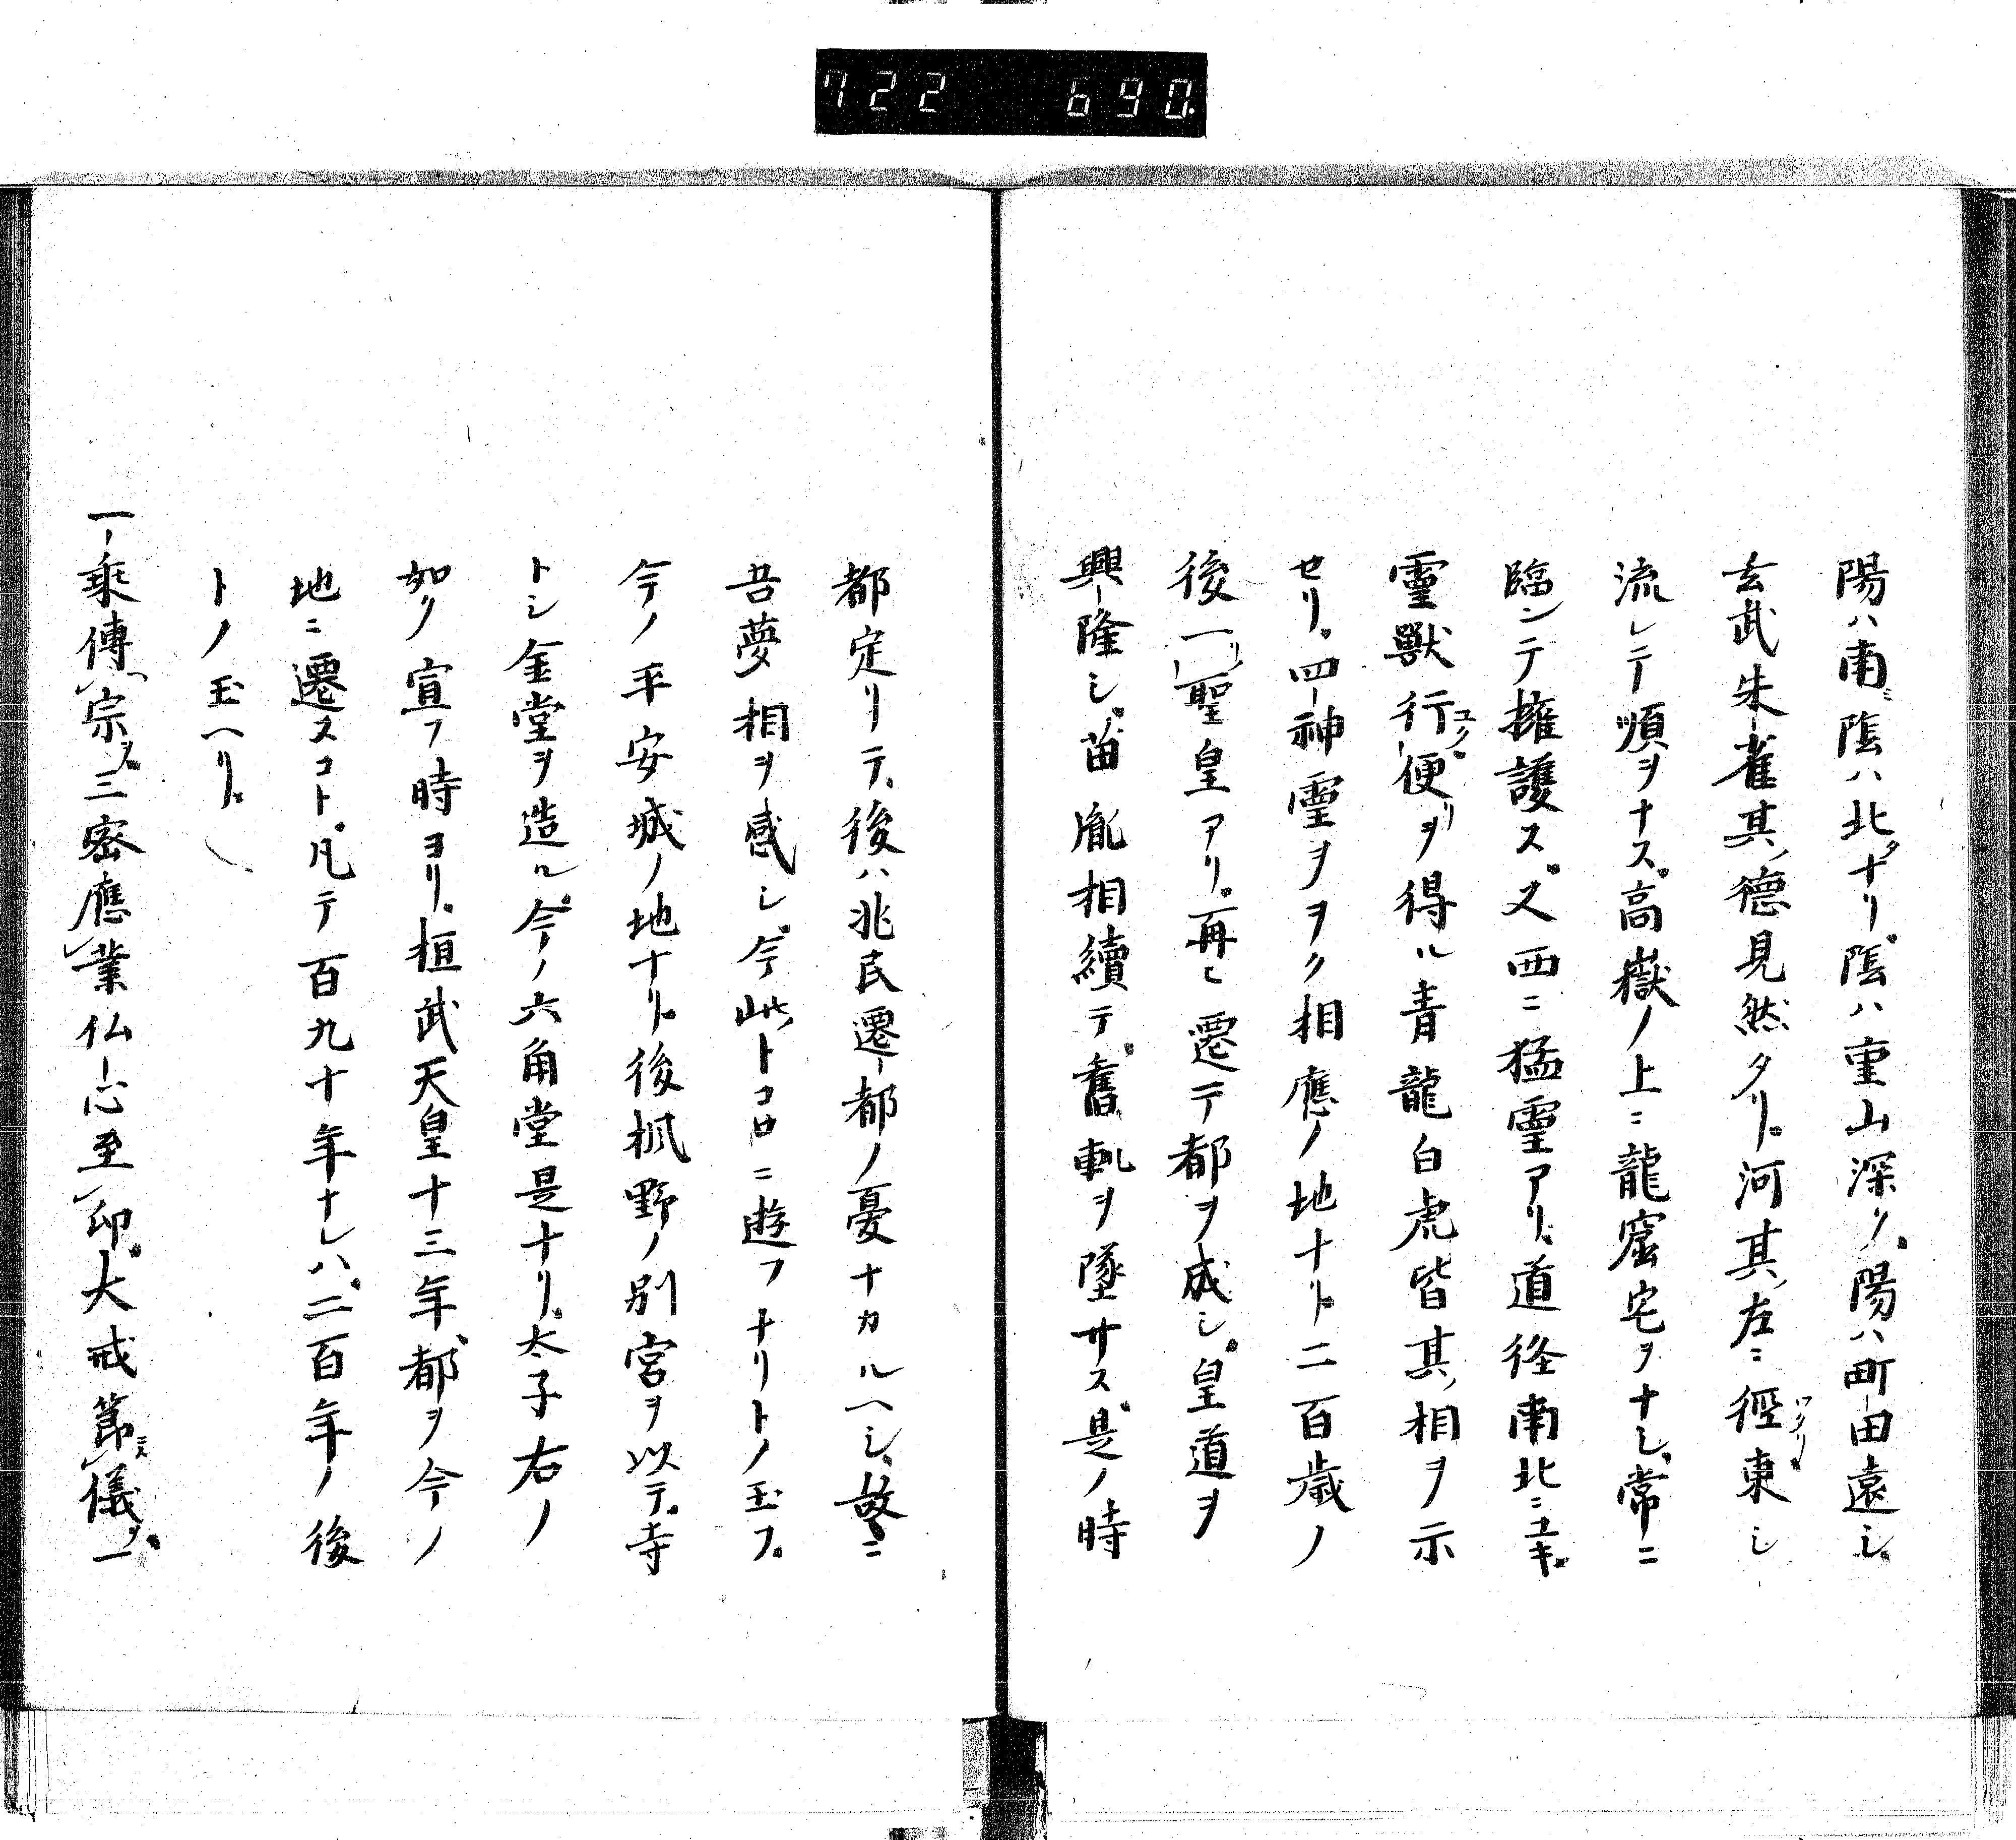 722 690.
陽ハ南ニ陰ハ北ナリ。陰ハ重山深ク。陽ハ町田遠シ。
玄武朱雀其ノ德見然タリ。河其ノ左ニ徑東シ
流レテ順ヲナス。高嶽ノ上ニ龍窟宅ヲナシ。常ニ
臨ンテ擁護ス。又西ニ猛靈アリ。道徑南北ニユキ。
靈獸行ユク便リヲ得ル青龍白虎皆其ノ相ヲ示
セリ。四神靈ヲヲク相應ノ地ナリ。二百歳ノ
後一リノ聖皇アリ。再ヒ遷テ都ヲ成シ。皇道ヲ
興隆シ。苗胤相續テ。舊軌ヲ墜サス。是ノ時
都定リテ。後ハ兆民遷都ノ憂ナカルヘシ。故ニ
吾夢相ヲ感シ。今此トコロニ遊フナリトノ玉フ。
今ノ平安城ノ地ナリ。後楓野ノ別宮ヲ以テ。寺
トシ金堂ヲ造ル。今ノ六角堂是ナリ。太子右ノ
如ク宣フ時ヨリ。桓武天皇十三年。都ヲ今ノ
地ニ遷スコト。凡テ百九十年ナレハ。二百年ノ後
トノ玉ヘリ。
一乘傳ハ宗ヲ。三密應業仏心至印。大戒節ニス儀ヲ。一